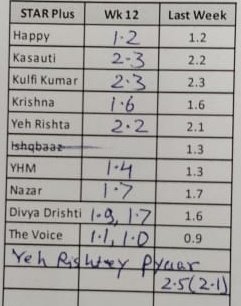 STAR Plus Wk 12 Last Week
Happy 1.2 1.2
Kasauti 2.3 2.2
Kulfi Kumar 2.3 2.3
Krishna 1.6 1.6
Yeh Rishta 2.2 2.1
Ishqbaaz 1.3
YHM 1.4 1.3
Nazar 1.7 1.7
Divya Drishti 1.9, 1.7 1.6
The Voice 1.1, 1.0 0.9
Yeh Rishtey Pyaar
2.5(2.1)